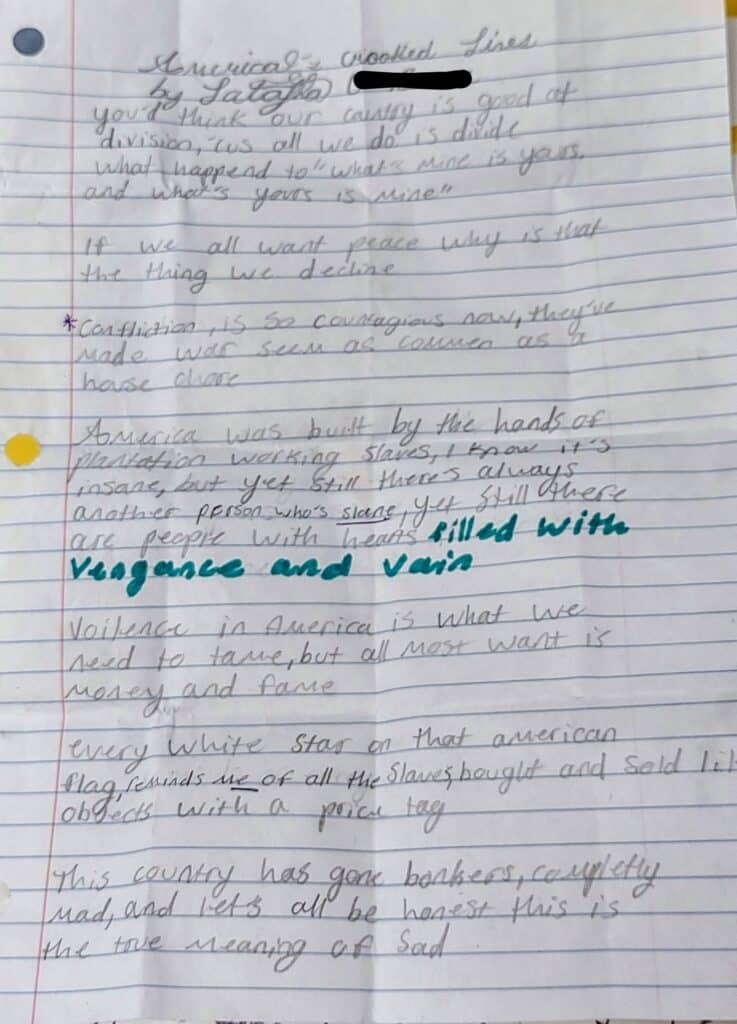 America's crooked Lines
by
you'd think our country is good at
division, 'cus all we do is divide
what happend to "what's mine is yours,
and what's yours is mine"
If we all want peace why is that
the thing we decline
*Confliction, is so countagious now, they've
made war seem as commen as a
house chore
America was built by the hands of
plantation working slaves, I know it's
insane, but yet still there's always
another person who's slane, yet still there
are people with hearts filled with
vengance and vain
Voilence in America is what we
need to tame, but all most want is
money and fame
every white star on that american
flag, reminds me of all the slaves, bought and sold
objects with a price tag
This country has gone bonkers, completly
mad, and let's all be honest this is
the true meaning of sad